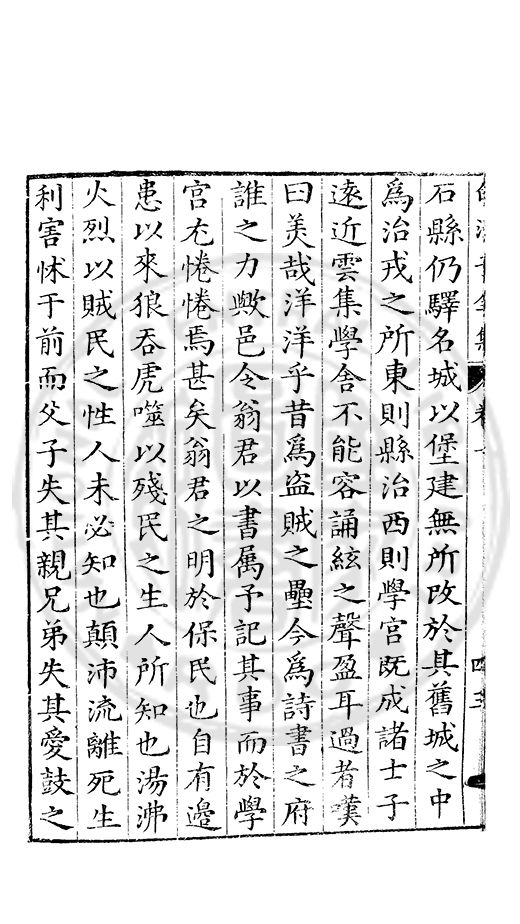 石縣仍驛名城以堡建無所改於其舊城之中
爲治戎之所東則縣治西則學官既成諸士子
遠近雲集學舍不能容誦絃之聲盈耳過者嘆
曰美哉洋洋乎昔爲盜賊之壘今爲詩書之府
誰之力歟邑令翁君以書属予記其事而於學
宮尤惓惓焉甚矣翁君之明於保民也自有邉
患以來狼吞虎噬以殘民之生人所知也湯沸
火烈以賊民之性人未必知也顛沛流離死生
利害怵于前而父子失其親兄弟失其愛鼓之